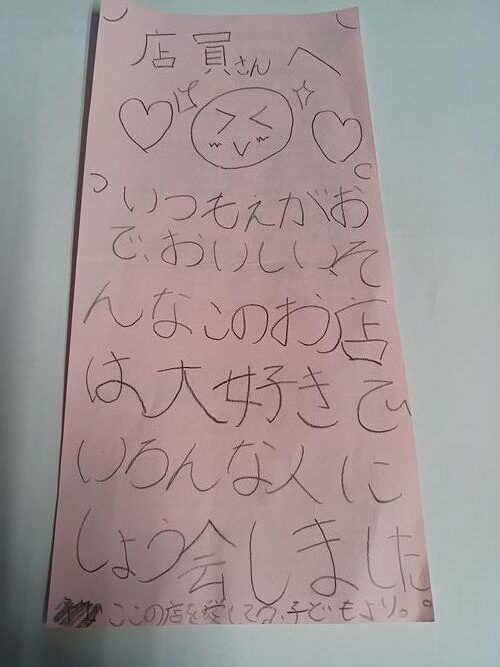 店員さんへ
いつもえがお
で、おいしい、そ
んなこのお店
は大好きで
いろんな人に
しょう会しました。
ここの店を愛してる、子どもより。